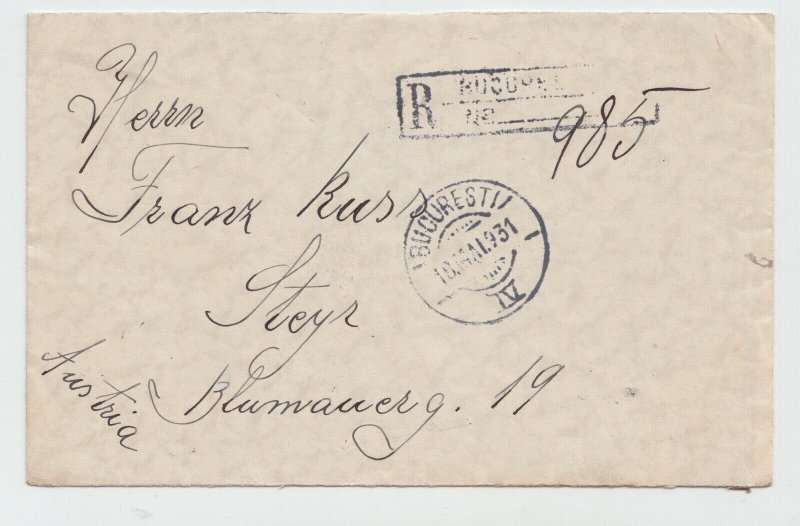 Herrn
Franz Kuss
Steyr
Blumauerg. 19
Austria
R BUCUREȘ
No 985
BUCUREȘTI
18.MAI.931
IV